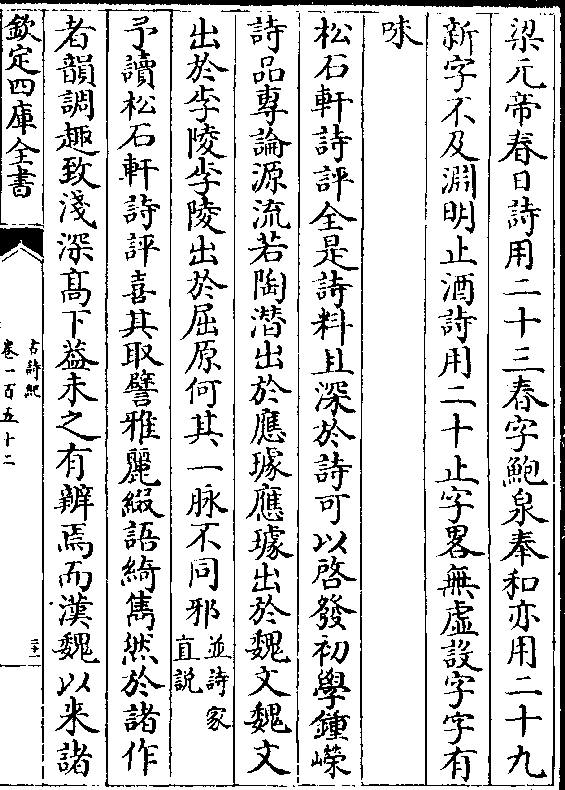 梁元帝春日詩用二十三春字鮑泉奉和亦用二十九
新字不及淵明止酒詩用二十止字畧無虛設字字有
味
松石軒詩評全是詩料且深於詩可以啓發初學鍾嶸
詩品專論源流若陶潜出於應璩應璩出於魏文魏文
出於李陵李陵出於屈原何其一脉不同邪並詩家直説
予讀松石軒詩評喜其取譬雅麗綴語綺雋然於諸作
者韻調趣致淺深髙下葢未之有辨焉而漢魏以来諸
欽定四庫全書
古詩紀
卷一百五十二
三十一